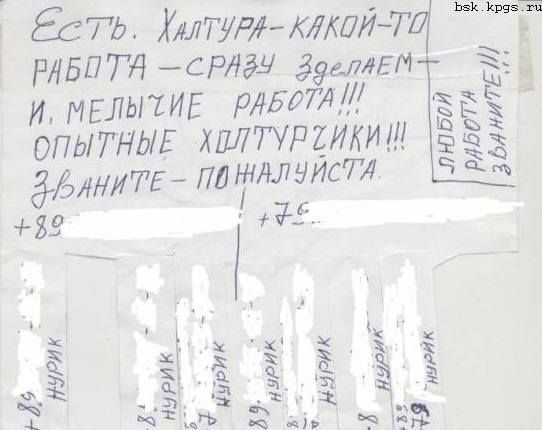 bsk.kpgs.ru
ЕСТЬ. ХАЛТУРА-КАКОЙ-ТО
РАБОТА-СРАЗУ ЗДЕЛАЕМ-
И, МЕЛЫЧИЕ РАБОТА!!!
ОПЫТНЫЕ ХОЛТУРЧИКИ!!!
ЗВАНИТЕ-ПОЖАЛУЙСТА.
ЛЮБОЙ
РАБОТА
ЗВАНИТЕ!!!
+89
+79
+89
НУРИК
+89
НУРИК
+7
НУРИК
89
НУРИК
8
+7
НУРИК
-8
НУРИК
+89
+79
НУРИК